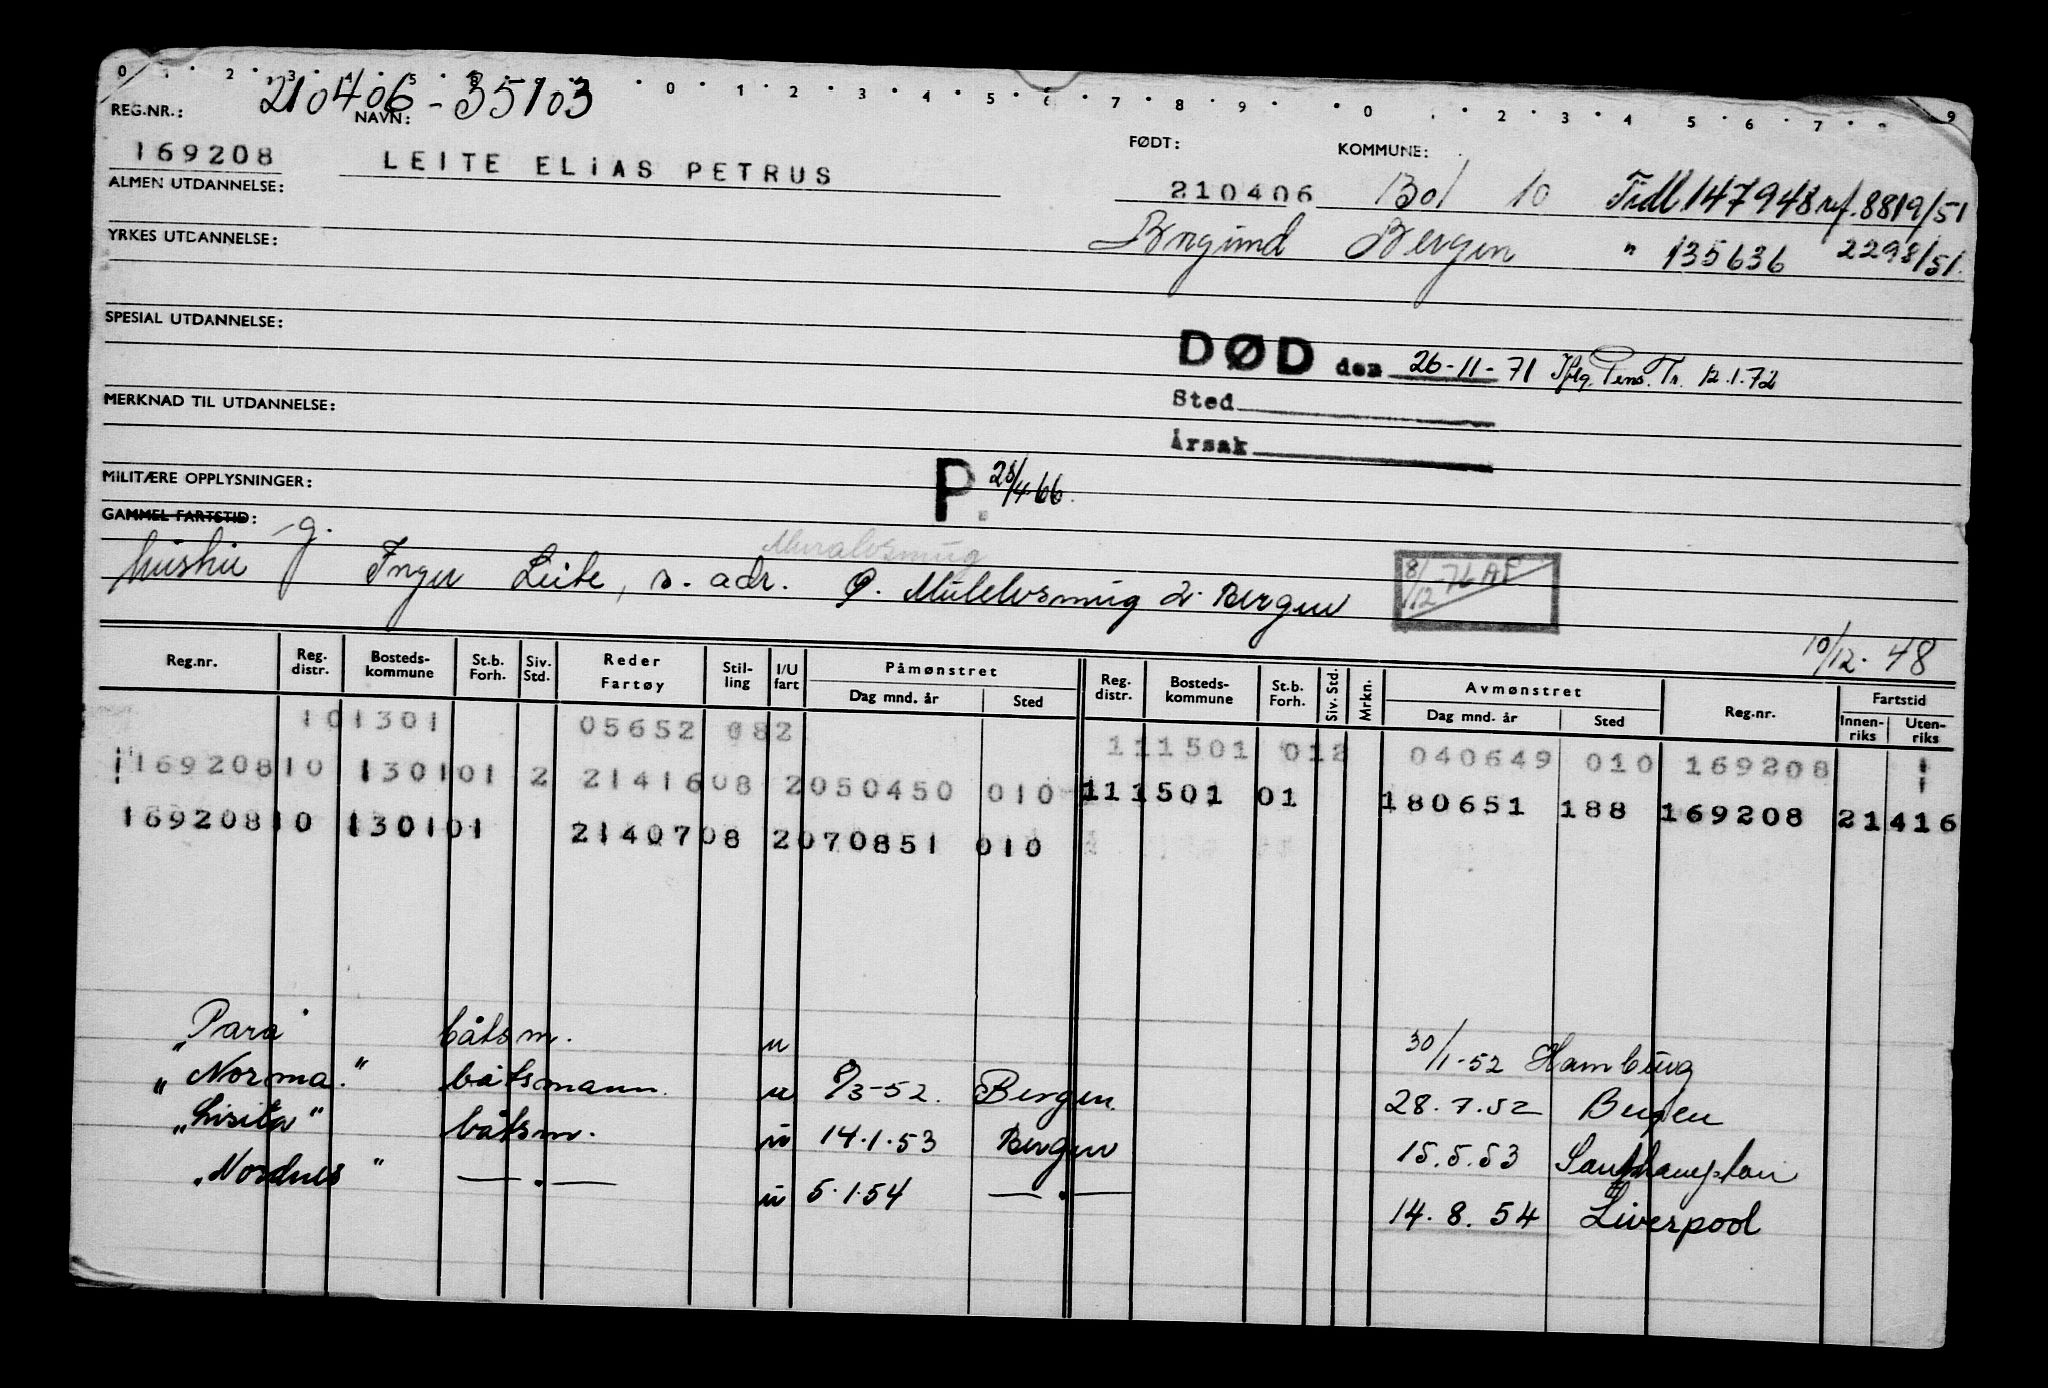 0 1 2 3 4 5 8 9 0 1 2 3 4 5 6 7 8 9 0 . 2 3 4 5 6 7 9
REG.NR.: 210406-35103
NAVN: FØDT: KOMMUNE:
169208 LEITE ELiAS PETRUS 210406 1301 10 Tidl 147948 ref. 8819/51
ALMEN UTDANNELSE:
Borgund Bergen " 135636 2298/51.
YRKES UTDANNELSE:
SPESIAL UTDANNELSE:
DØD den 26-11-71 Iflg. Pens. Tr. 12.1.72
Sted
MERKNAD TIL UTDANNELSE:
Årsak
MILITÆRE OPPLYSNINGER:
P. 28/4-66.
GAMMEL FARTSTID:
g.
hustru Inger Leite, s. adr. Ø. Mulelvsmug 2. Bergen
8/12-76 AF
10/12-48
Reg.nr. Reg. distr. Bosteds-kommune St.b. Forh. Siv. Std. Reder Fartøy Stil-ling I/U fart Påmønstret Reg. distr. Bosteds-kommune St.b. Forh. Siv. Std. Mrkn. Avmønstret Reg.nr. Fartstid
Dag mnd. år Sted Dag mnd. år Sted Innen-riks Uten-riks
101301 05652 082 111501 012 040649 010 169208
169208 10 130101 2 2141608 2050450 010 111501 01 180651 188 169208 21416
169208 10 130101 2140708 2070851 010
"Para" båtsm. u 30/1-52 Hamburg
"Norma." båtsmann. u 8/3-52. Bergen. 28.7.52 Bergen
"Lisita" båtsm. u 14.1.53 Bergen 15.5.53 Southampton
"Nordnes" — . — u 5.1.54 — . — 14.8.54 Liverpool